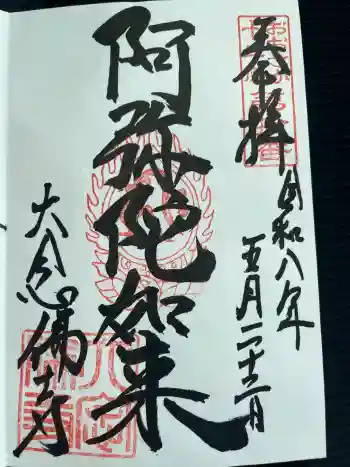 奉拝
令和八年
五月二十三日
阿弥陀如来
大念佛寺